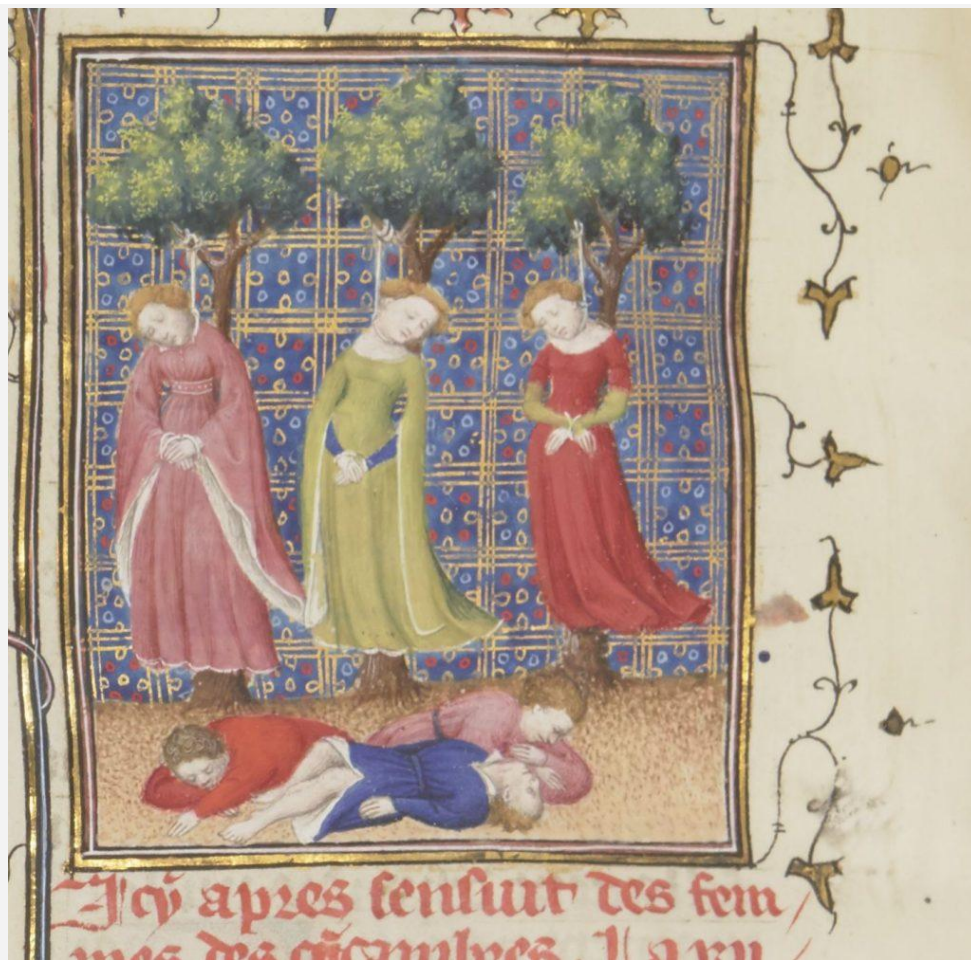 Icy apres sensuit des fem
mes des